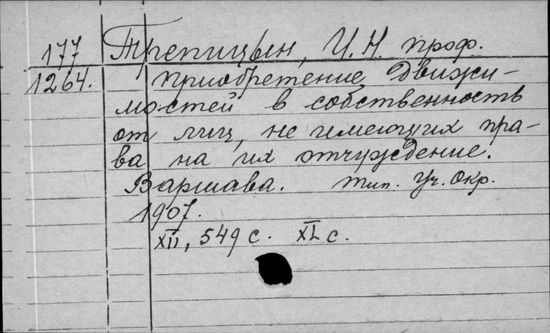 177 Трепицын, И.Н. проф.
1264. Приобретение движи-
мостей в собственность
от лиц, не имеющих пра-
ва на их отчуждение.
Варшава. тип. Уч. Окр.
1907.
XII, 549 с. XL с.